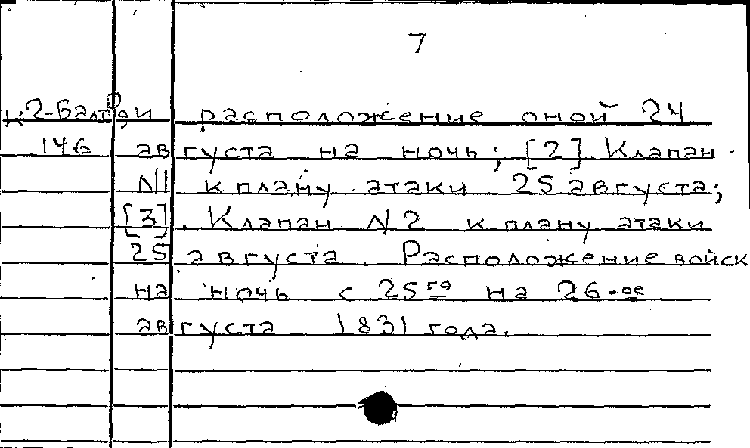 7
к2-Балт9 и расположение оной 24
146 августа на ночь; [2]. Клапан
N1 к плану атаки 25 августа;
[3]. Клапан N2 к плану атаки
25 августа. Расположение войск
на ночь с 25го на 26-ое
августа 1831 года.